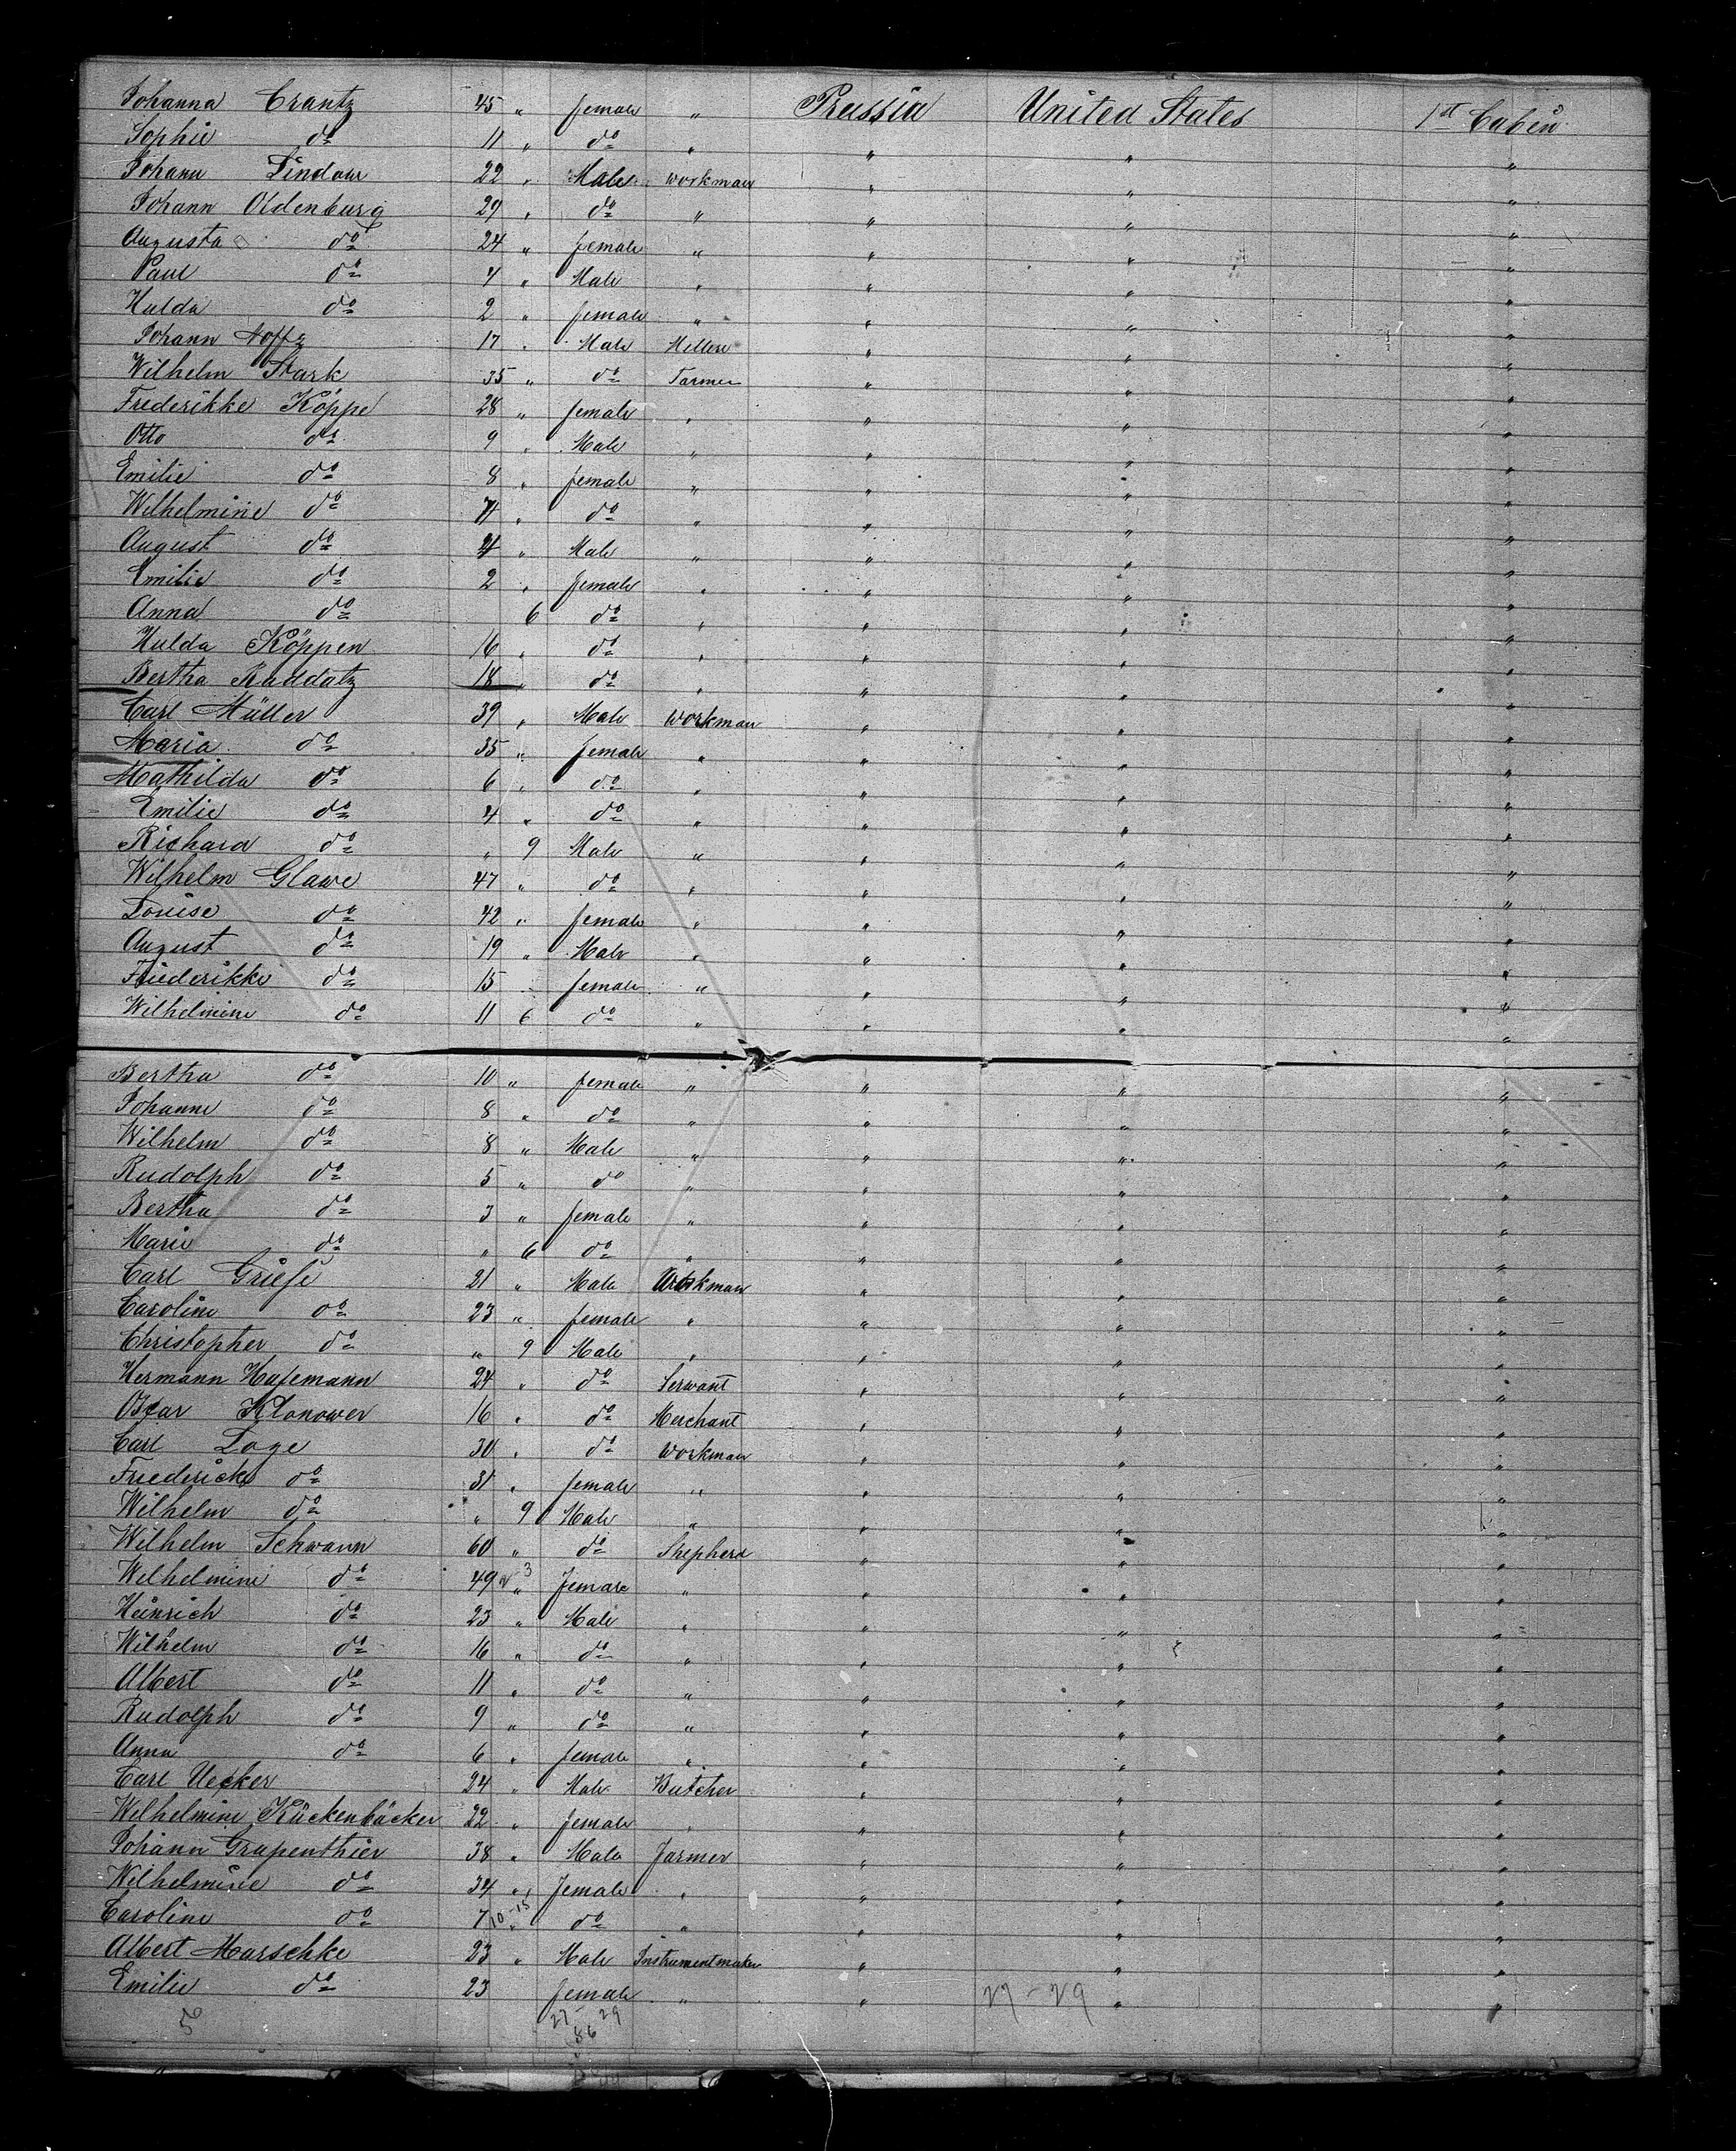 Johanna Crantz 45 " female " Prussia United States 1st Cabin
Sophie do 11 " do " " " "
Johann Lindow 22 " Male workman " " "
Johann Oldenburg 29 " do " " " "
Augusta do 24 " female " " " "
Paul do 4 " Male " " " "
Hulda do 2 " female " " " "
Johann Noffz 17 " Male Miller " " "
Wilhelm Stark 35 " do Farmer " " "
Frederikke Köppe 28 " female " " " "
Otto do 9 " Male " " " "
Emilie do 8 " female " " " "
Wilhelmine do 7 " do " " " "
August do 4 " Male " " " "
Emilie do 2 " female " " " "
Anna do 6 do " " " "
Hulda Köppen 16 " do " " " "
Bertha Raddatz 18 " do " " " "
Carl Müller 39 " Male workman " " "
Maria do 35 " female " " " "
Mathilda do 6 " do " " " "
Emilie do 4 " do " " " "
Richard do " 9 Male " " " "
Wilhelm Glawe 47 " do " " " "
Louise do 42 " female " " " "
August do 19 " Male " " " "
Friederikke do 15 " female " " " "
Wilhelmine do 11 6 do " " " "
Bertha do 10 " female " " " "
Johanne do 8 " do " " " "
Wilhelm do 8 " Male " " " "
Rudolph do 5 " do " " " "
Bertha do 3 " female " " " "
Marie do " 6 do " " " "
Carl Griese 21 " Male Workman " " "
Caroline do 23 " female " " " "
Christopher do " 9 Male " " " "
Hermann Hasemann 24 " do Servant " " "
Oscar Klonower 16 " do Merchant " " "
Carl Loge 30 " do workman " " "
Friedericke do 31 " female " " " "
Wilhelm do " 9 Male " " " "
Wilhelm Schwann 60 " do Shepherd " " "
Wilhelmine do 49 " 3 Female " " " "
Heinrich do 23 " Male " " " "
Wilhelm do 16 " do " " " "
Albert do 11 " do " " " "
Rudolph do 9 " do " " " "
Anna do 6 " female " " " "
Carl Uecker 24 " Male Butcher " " "
Wilhelmine Kückenbäcker 22 " female " " " "
Johann Grapenthien 38 " Male Farmer " " "
Wilhelmine do 34 " Female " " " "
Caroline do 7 10-15 " do " " " "
Albert Marschke 23 " Male Instrumentmaker " " "
Emilie do 23 female " " 27-29 " "
50 27-29
86